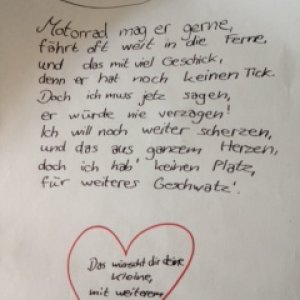 Motorrad mag er gerne,
fährt oft weit in die Ferne,
und das mit viel Geschick,
denn er hat noch keinen Tick.
Doch ich muss jetz sagen,
er würde nie verzagen!
Ich will noch weiter scherzen,
und das aus ganzem Herzen,
doch ich hab' keinen Platz,
für weiteres Geschwatz'.
Das wünscht dir deine
Kleine,
mit weiterem